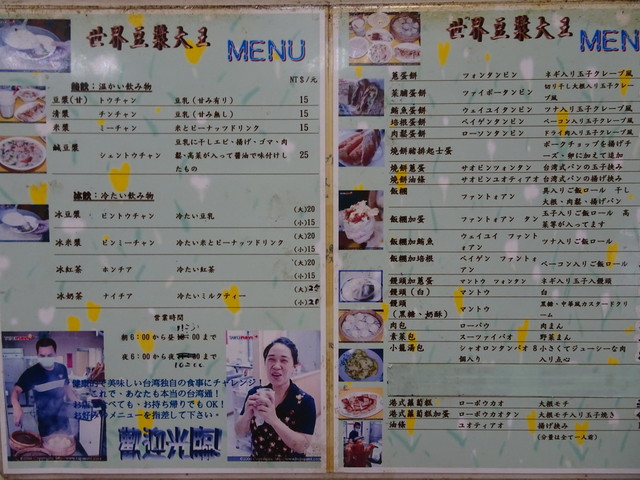 世界豆漿大王 MENU
NT$/元
熱飲：温かい飲み物
豆漿(甘) トウチャン 豆乳(甘み有り) 15
清漿 チンチャン 豆乳(甘み無し) 15
米漿 ミーチャン 米とピーナッツドリンク 15
鹹豆漿 シェントウチャン 豆乳に干しエビ・揚げ・ゴマ・肉鬆・高菜が入って醤油で味付けしたもの 25
冰飲：冷たい飲み物
冰豆漿 ビントウチャン 冷たい豆乳 (大)20 (小)15
冰米漿 ビンミーチャン 冷たい米とピーナッツドリンク (大)20 (小)15
冰紅茶 ホンチア 冷たい紅茶 (大)20 (小)15
冰奶茶 ナイチア 冷たいミルクティー (大)25 (小)20
営業時間
朝6:00から昼
夜6:00から夜
健康的で美味しい台湾独自の食事にチャレンジ！
これで、あなたも本当の台湾通！
お店で食べても、お持ち帰りでもOK！
お好みのメニューを指差して下さい。
歡迎光臨
世界豆漿大王 MEN
蔥蛋餅 ツォンタンビン ネギ入り玉子クレープ風
菜脯蛋餅 ツァイポータンビン 切り干し大根入り玉子クレープ風
鮪魚蛋餅 ウェイユイタンビン ツナ入り玉子クレープ風
培根蛋餅 ペイゲンタンビン ベーコン入り玉子クレープ風
肉鬆蛋餅 ローソンタンビン ドライ肉入り玉子クレープ風
燒餅豬排起士蛋 ポークチョップを揚げチーズ・卵に加えて追加
燒餅蔥蛋 サオピンツォンタン 台湾式パンの玉子挟み
燒餅油條 サオピンユオティアオ 台湾式パンの揚げ挟み
飯糰 ファントィアン 具入りご飯ロール 干し大根・肉鬆・揚げパン
飯糰加蛋 ファントィアン タン 玉子入りご飯ロール 高菜等が入ってます
飯糰加鮪魚 ウェイユイ ファントィアン ツナ入りご飯ロール
飯糰加培根 ペイゲン ファントィアン ベーコン入りご飯ロール
饅頭加蔥蛋 マントウ ツォンタン ネギ入り玉子入饅頭
饅頭(白) マントウ 白
饅頭(黒糖、奶酥) マントウ 黒糖、中華風カスタードクリーム
肉包 ローパウ 肉まん
素菜包 スーツァイパオ 野菜まん
小籠湯包 シャオロンタンパオ 8個入り 小さくてジューシーな肉入り点心
港式蘿蔔糕 ローポウカオ 大根モチ
港式蘿蔔糕加蛋 ローポウカオタン 大根モチ入り玉子焼き
油條 ユオティアオ 揚げ挟み
(分量は全て一人前)